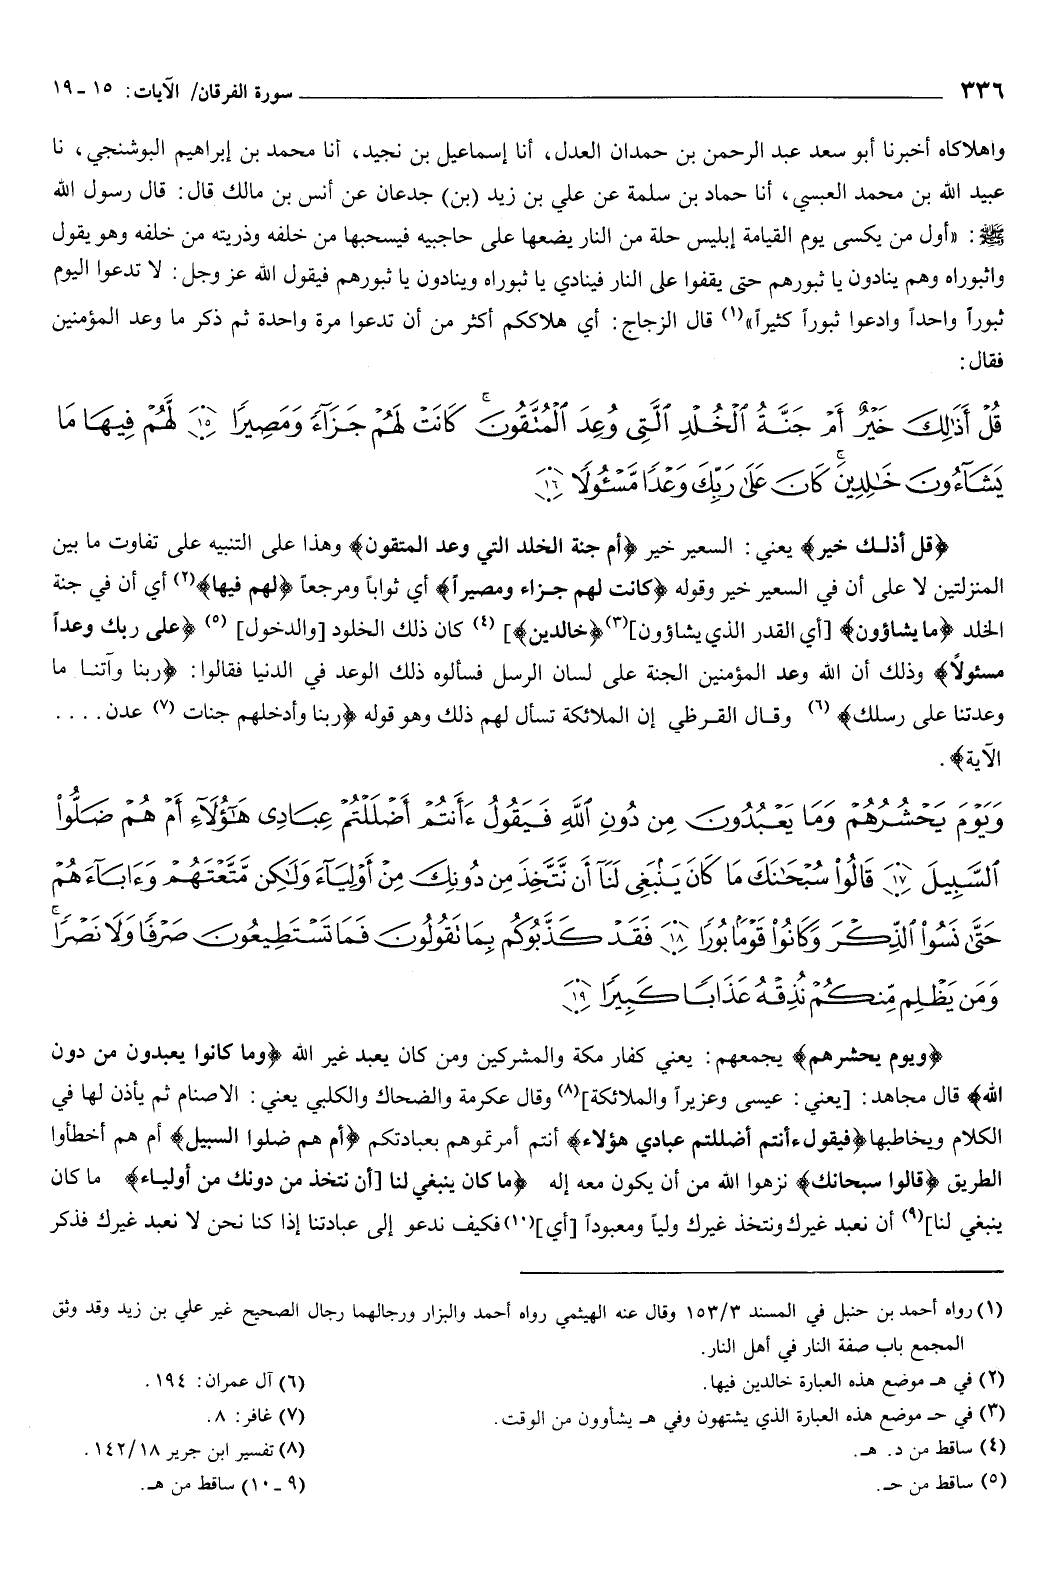 ٣٣٦ ــــــــــــ سورة الفرقان/ الآيات: ١٥ ـ ١٩
واهلاكاه أخبرنا أبو سعد عبد الرحمن بن حمدان العدل، أنا إسماعيل بن نجيد، أنا محمد بن إبراهيم البوشنجي، نا
عبيد الله بن محمد العبسي، أنا حماد بن سلمة عن علي بن زيد (بن) جدعان عن أنس بن مالك قال: قال رسول الله
ﷺ: «أول من يكسى يوم القيامة إبليس حلة من النار يضعها على حاجبيه فيسحبها من خلفه وذريته من خلفه وهو يقول
واثبوراه وهم ينادون يا ثبورهم حتى يقفوا على النار فينادي يا ثبوراه وينادون يا ثبورهم فيقول الله عز وجل: لا تدعوا اليوم
ثبوراً واحداً وادعوا ثبوراً كثيراً»(١) قال الزجاج: أي هلاككم أكثر من أن تدعوا مرة واحدة ثم ذكر ما وعد المؤمنين
فقال:
قُلْ أَذَٰلِكَ خَيْرٌ أَمْ جَنَّةُ ٱلْخُلْدِ ٱلَّتِي وُعِدَ ٱلْمُتَّقُونَ ۚ كَانَتْ لَهُمْ جَزَآءً وَمَصِيرًا ﴿١٥﴾ لَّهُمْ فِيهَا مَا
يَشَآءُونَ خَٰلِدِينَ ۚ كَانَ عَلَىٰ رَبِّكَ وَعْدًا مَّسْـُٔولًا ﴿١٦﴾
﴿قل أذلك خير﴾ يعني: السعير خير ﴿أم جنة الخلد التي وعد المتقون﴾ وهذا على التنبيه على تفاوت ما بين
المنزلتين لا على أن في السعير خير وقوله ﴿كانت لهم جزاء ومصيراً﴾ أي ثواباً ومرجعاً ﴿لهم فيها﴾(٢) أي أن في جنة
الخلد ﴿ما يشاؤون﴾ [أي القدر الذي يشاؤون](٣) ﴿خالدين﴾] (٤) كان ذلك الخلود [والدخول] (٥) ﴿على ربك وعداً
مسئولاً﴾ وذلك أن الله وعد المؤمنين الجنة على لسان الرسل فسألوه ذلك الوعد في الدنيا فقالوا: ﴿ربنا وآتنا ما
وعدتنا على رسلك﴾ (٦) وقال القرظي إن الملائكة تسأل لهم ذلك وهو قوله ﴿ربنا وأدخلهم جنات (٧) عدن . . . .
الآية﴾.
وَيَوْمَ يَحْشُرُهُمْ وَمَا يَعْبُدُونَ مِن دُونِ ٱللَّهِ فَيَقُولُ ءَأَنتُمْ أَضْلَلْتُمْ عِبَادِى هَٰٓؤُلَآءِ أَمْ هُمْ ضَلُّوا۟
ٱلسَّبِيلَ ﴿١٧﴾ قَالُوا۟ سُبْحَٰنَكَ مَا كَانَ يَنۢبَغِى لَنَآ أَن نَّتَّخِذَ مِن دُونِكَ مِنْ أَوْلِيَآءَ وَلَٰكِن مَّتَّعْتَهُمْ وَءَابَآءَهُمْ
حَتَّىٰ نَسُوا۟ ٱلذِّكْرَ وَكَانُوا۟ قَوْمًۢا بُورًا ﴿١٨﴾ فَقَدْ كَذَّبُوكُم بِمَا تَقُولُونَ فَمَا تَسْتَطِيعُونَ صَرْفًا وَلَا نَصْرًا ۚ
وَمَن يَظْلِم مِّنكُمْ نُذِقْهُ عَذَابًا كَبِيرًا ﴿١٩﴾
﴿ويوم يحشرهم﴾ يجمعهم: يعني كفار مكة والمشركين ومن كان يعبد غير الله ﴿وما كانوا يعبدون من دون
الله﴾ قال مجاهد: [يعني: عيسى وعزيراً والملائكة](٨) وقال عكرمة والضحاك والكلبي يعني: الاصنام ثم يأذن لها في
الكلام ويخاطبها ﴿فيقول ءأنتم أضللتم عبادي هؤلاء﴾ أنتم أمرتموهم بعبادتكم ﴿أم هم ضلوا السبيل﴾ أم هم أخطأوا
الطريق ﴿قالوا سبحانك﴾ نزهوا الله من أن يكون معه إله ﴿ما كان ينبغي لنا [أن نتخذ من دونك من أولياء﴾ ما كان
ينبغي لنا](٩) أن نعبد غيرك ونتخذ غيرك ولياً ومعبوداً [أي](١٠) فكيف ندعو إلى عبادتنا إذا كنا نحن لا نعبد غيرك فذكر
(١) رواه أحمد بن حنبل في المسند ١٥٣/٣ وقال عنه الهيثمي رواه أحمد والبزار ورجالهما رجال الصحيح غير علي بن زيد وقد وثق
المجمع باب صفة النار في أهل النار.
(٢) في هـ موضع هذه العبارة خالدين فيها.
(٣) في حـ موضع هذه العبارة الذي يشتهون وفي هـ يشأوون من الوقت.
(٤) ساقط من د. هـ.
(٥) ساقط من حـ.
(٦) آل عمران: ١٩٤.
(٧) غافر: ٨.
(٨) تفسير ابن جرير ١٤٢/١٨.
(٩ ـ ١٠) ساقط من هـ.